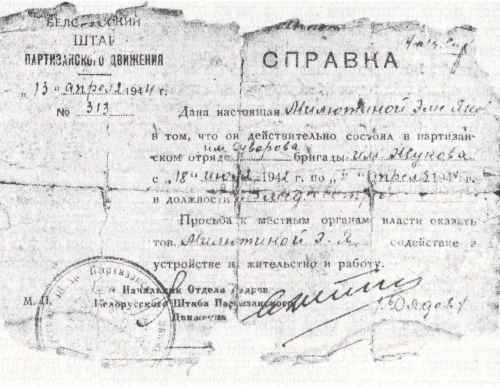 БЕЛОРУССКИЙ
ШТАБ
ПАРТИЗАНСКОГО ДВИЖЕНИЯ
„13" апреля 1944 г.
№ 313
СПРАВКА
Дана настоящая Милютиной
в том, что он действительно состоял в партизан-
им Суворова
ском отряде бригады им Жукова
с „18" 1942 г. по апреля 1944 г.
в должности
Просьба к местным органам власти оказать
тов. Милютиной Э. Я. содействие в
устройстве на жительство и работу.
Начальник Отдела Кадров
М. П. Белорусского Штаба Партизанского
Движения